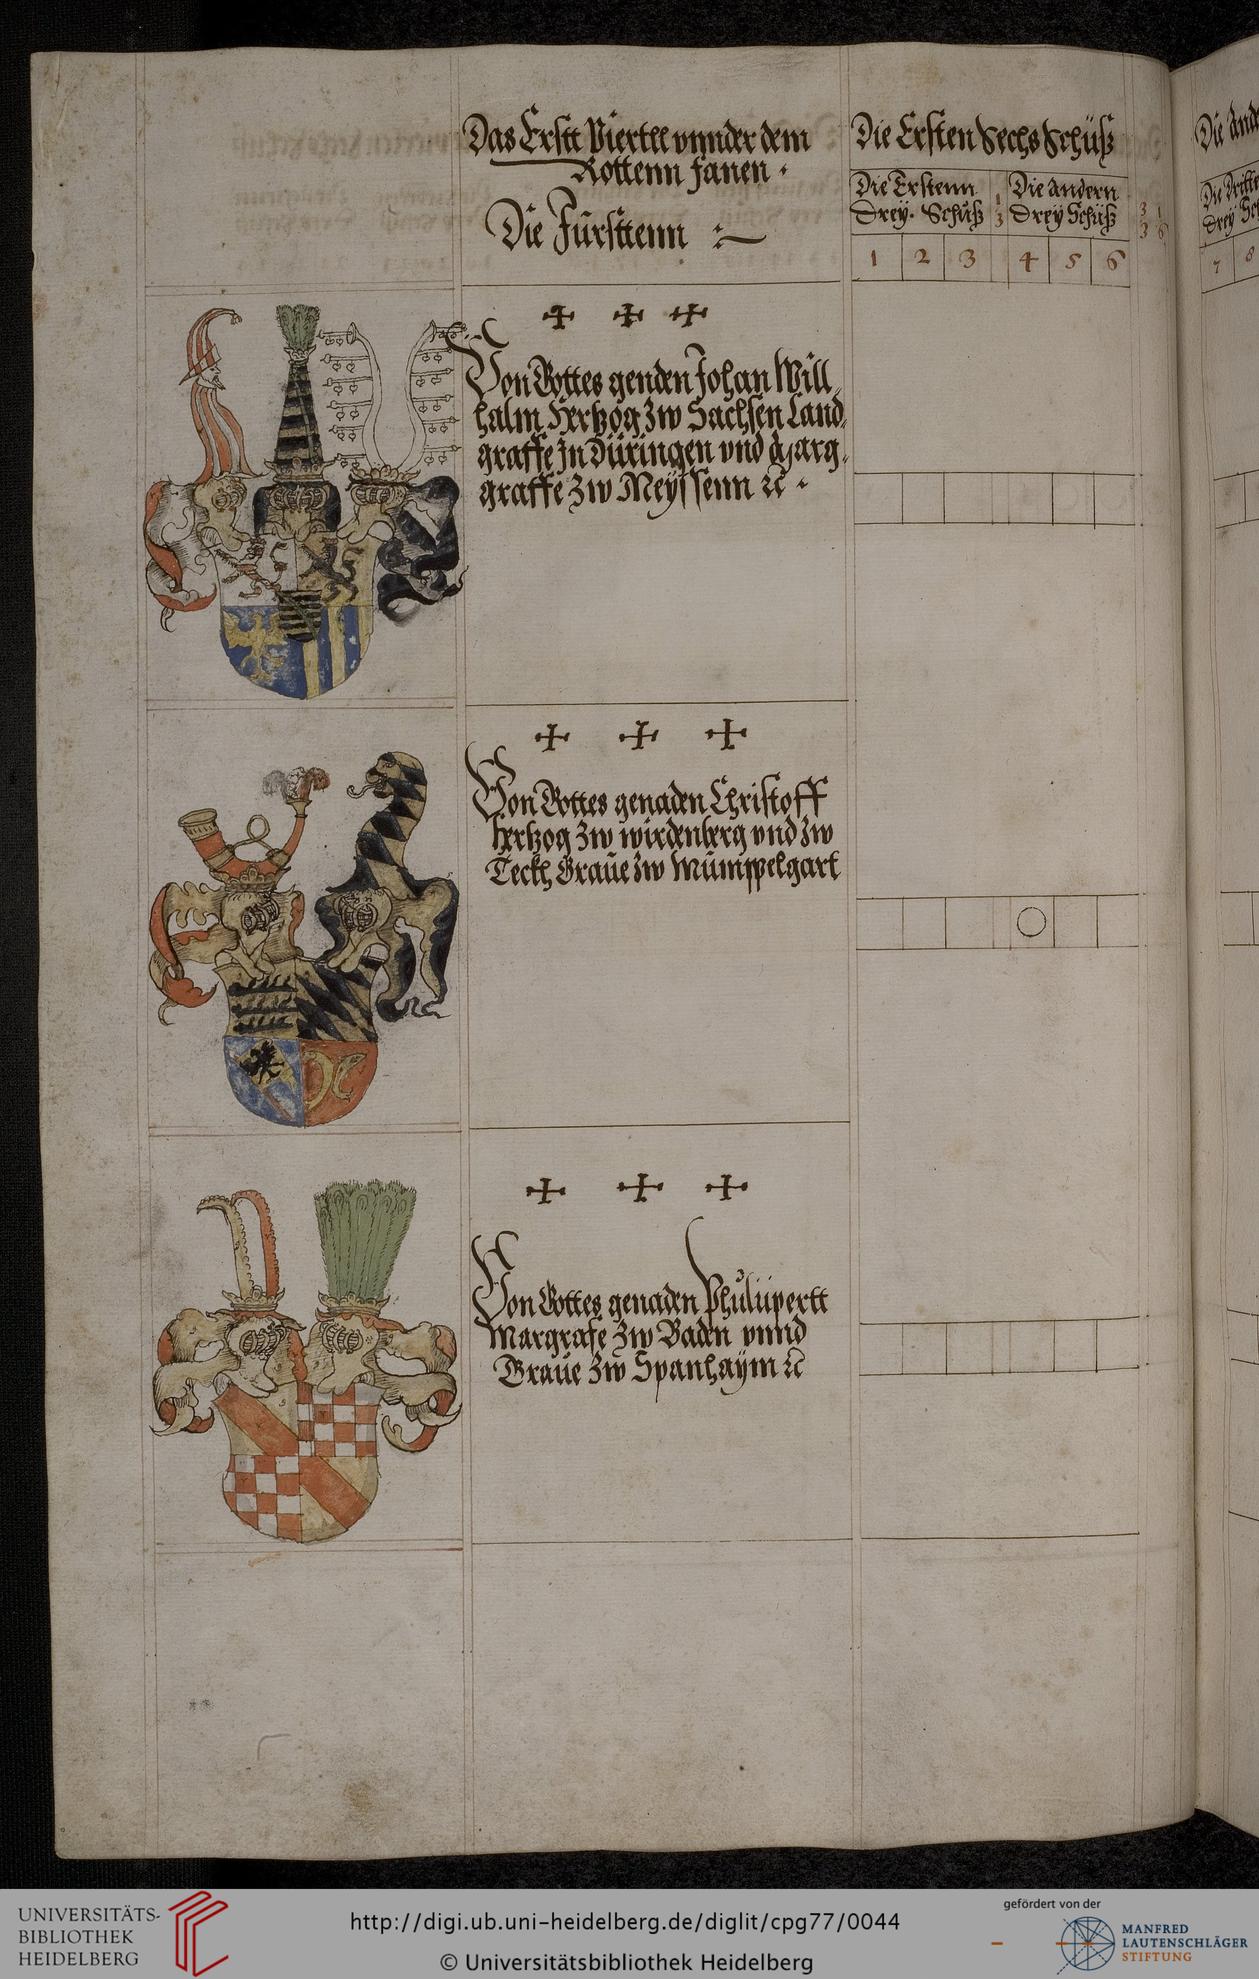 Das Erstt Viertel vnnder dem
Rottenn fanen ·
Die Fürsttenn
Die Ersten Sechs Schüß
Die Erstenn
Drey · Schüß
Die andern
Drey Schüß
1 2 3 4 5 6
Die
Die Dritte
Drey
7 8
Von Gottes genden Johan Will
halm Hertzog zw Sachsen Land
graffe In Düringen vnd Marg
graffe zw Meyssenn
Von Gottes genaden Christoff
hertzog zw wirdenberg vnd zw
Teckh Graue zw Mümppelgart
Von Gottes genaden Phülüpertt
Margrafe zw Baden vnnd
Graue zw Spanhaÿm
UNIVERSITÄTS-
BIBLIOTHEK
HEIDELBERG
http://digi.ub.uni-heidelberg.de/diglit/cpg77/0044
© Universitätsbibliothek Heidelberg
gefördert von der
MANFRED
LAUTENSCHLÄGER
STIFTUNG